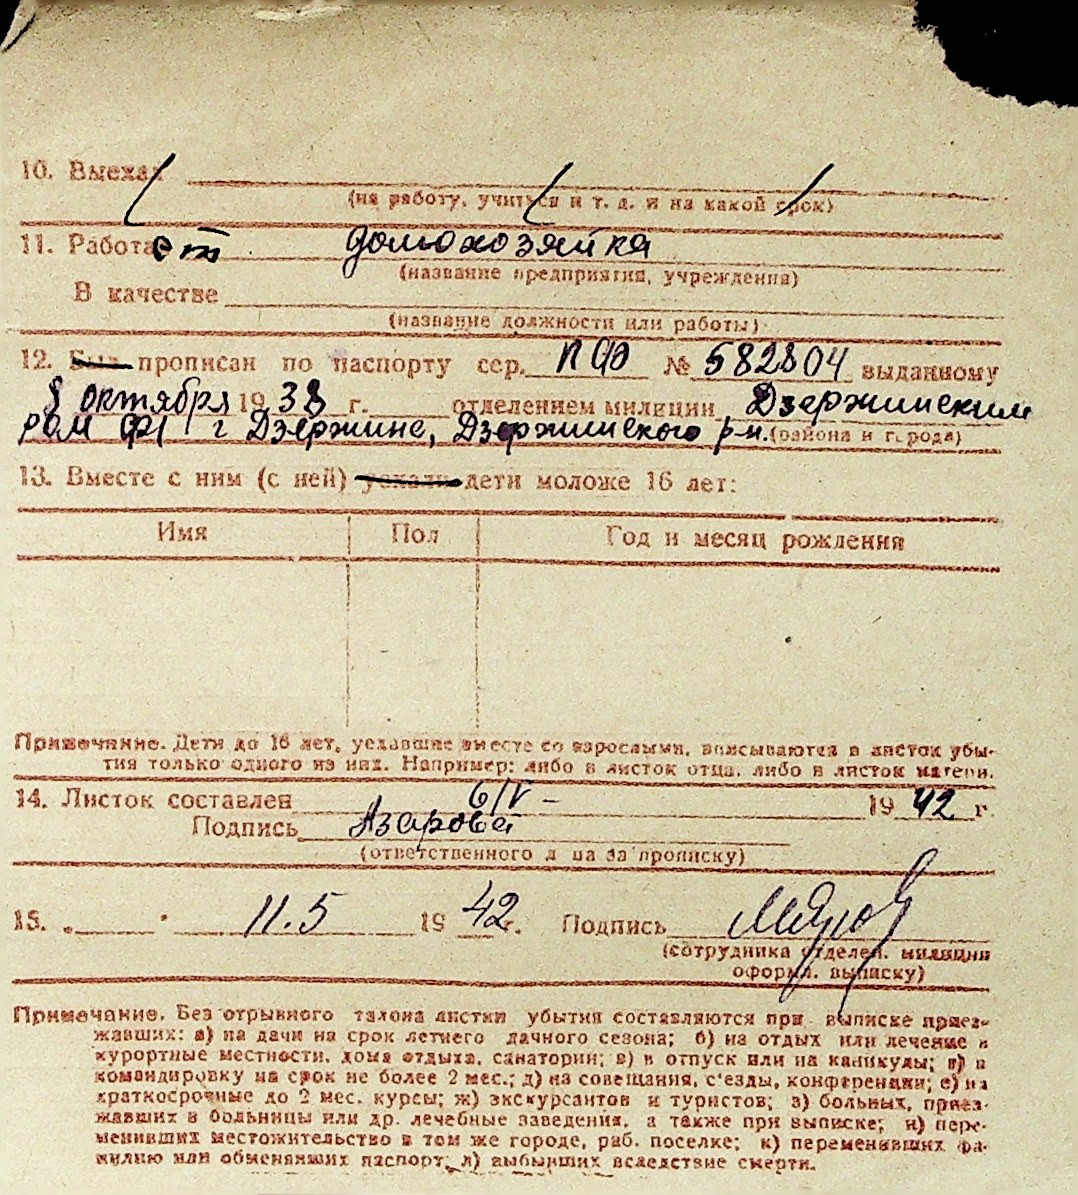 10. Выехал
(на работу, учиться и т. д. и на какой срок)
11. Работает домохозяйка
(название предприятия, учреждения)
В качестве
(название должности или работы)
12. Был прописан по паспорту сер. ПФ № 582804 выданному
8 октября 1938 г. отделением милиции Дзержинским
РОМ г Дзержинс, Дзержинского р-н. (района и города)
13. Вместе с ним (с ней) уехали дети моложе 16 лет:
Имя Пол Год и месяц рождения
Примечание. Дети до 16 лет, уехавшие вместе со взрослыми, вписываются в листок убы-
тия только одного из них. Например: либо в листок отца, либо в листок матери.
14. Листок составлен 6/V - 1942 г.
Подпись Азарова
(ответственного л ца за прописку)
15. 11.5 1942 г. Подпись
(сотрудника отделен. милиции
оформл. выписку)
Примечание. Без отрывного талона листки убытия составляются при выписке приез-
жавших: а) на дачи на срок летнего дачного сезона; б) на отдых или лечение в
курортные местности, дома отдыха, санатории; в) в отпуск или на каникулы; г) в
командировку на срок не более 2 мес.; д) на совещания, с'езды, конференции; е) на
краткосрочные до 2 мес. курсы; ж) экскурсантов и туристов; з) больных, приез-
жавших в больницы или др. лечебные заведения, а также при выписке; и) пере-
менивших местожительство в том же городе, раб. поселке; к) переменивших фа-
милию или обменявших паспорт; л) выбывших вследствие смерти.